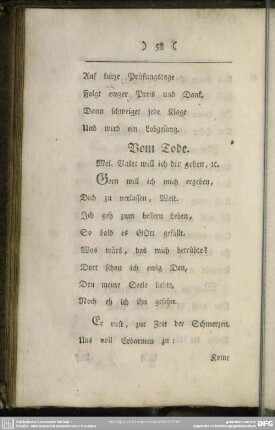 ) 58 (
Auf kurze Prüfungstage
Folgt ewger Preis und Dank,
Dann schweiget jede Klage
Und wird ein Lobgesang.
Vom Tode.
Mel. Valet will ich dir geben, ꝛc.
Gern will ich mich ergeben,
Dich zu verlassen, Welt.
Ich geh zum bessern Leben,
So bald es GOtt gefällt.
Was wärs, das mich betrübte?
Dort schau ich ewig Den,
Den meine Seele liebte,
Noch eh ich ihn gesehn.
Er ruft, zur Zeit der Schmerzen,
Uns voll Erbarmen zu:
Komt